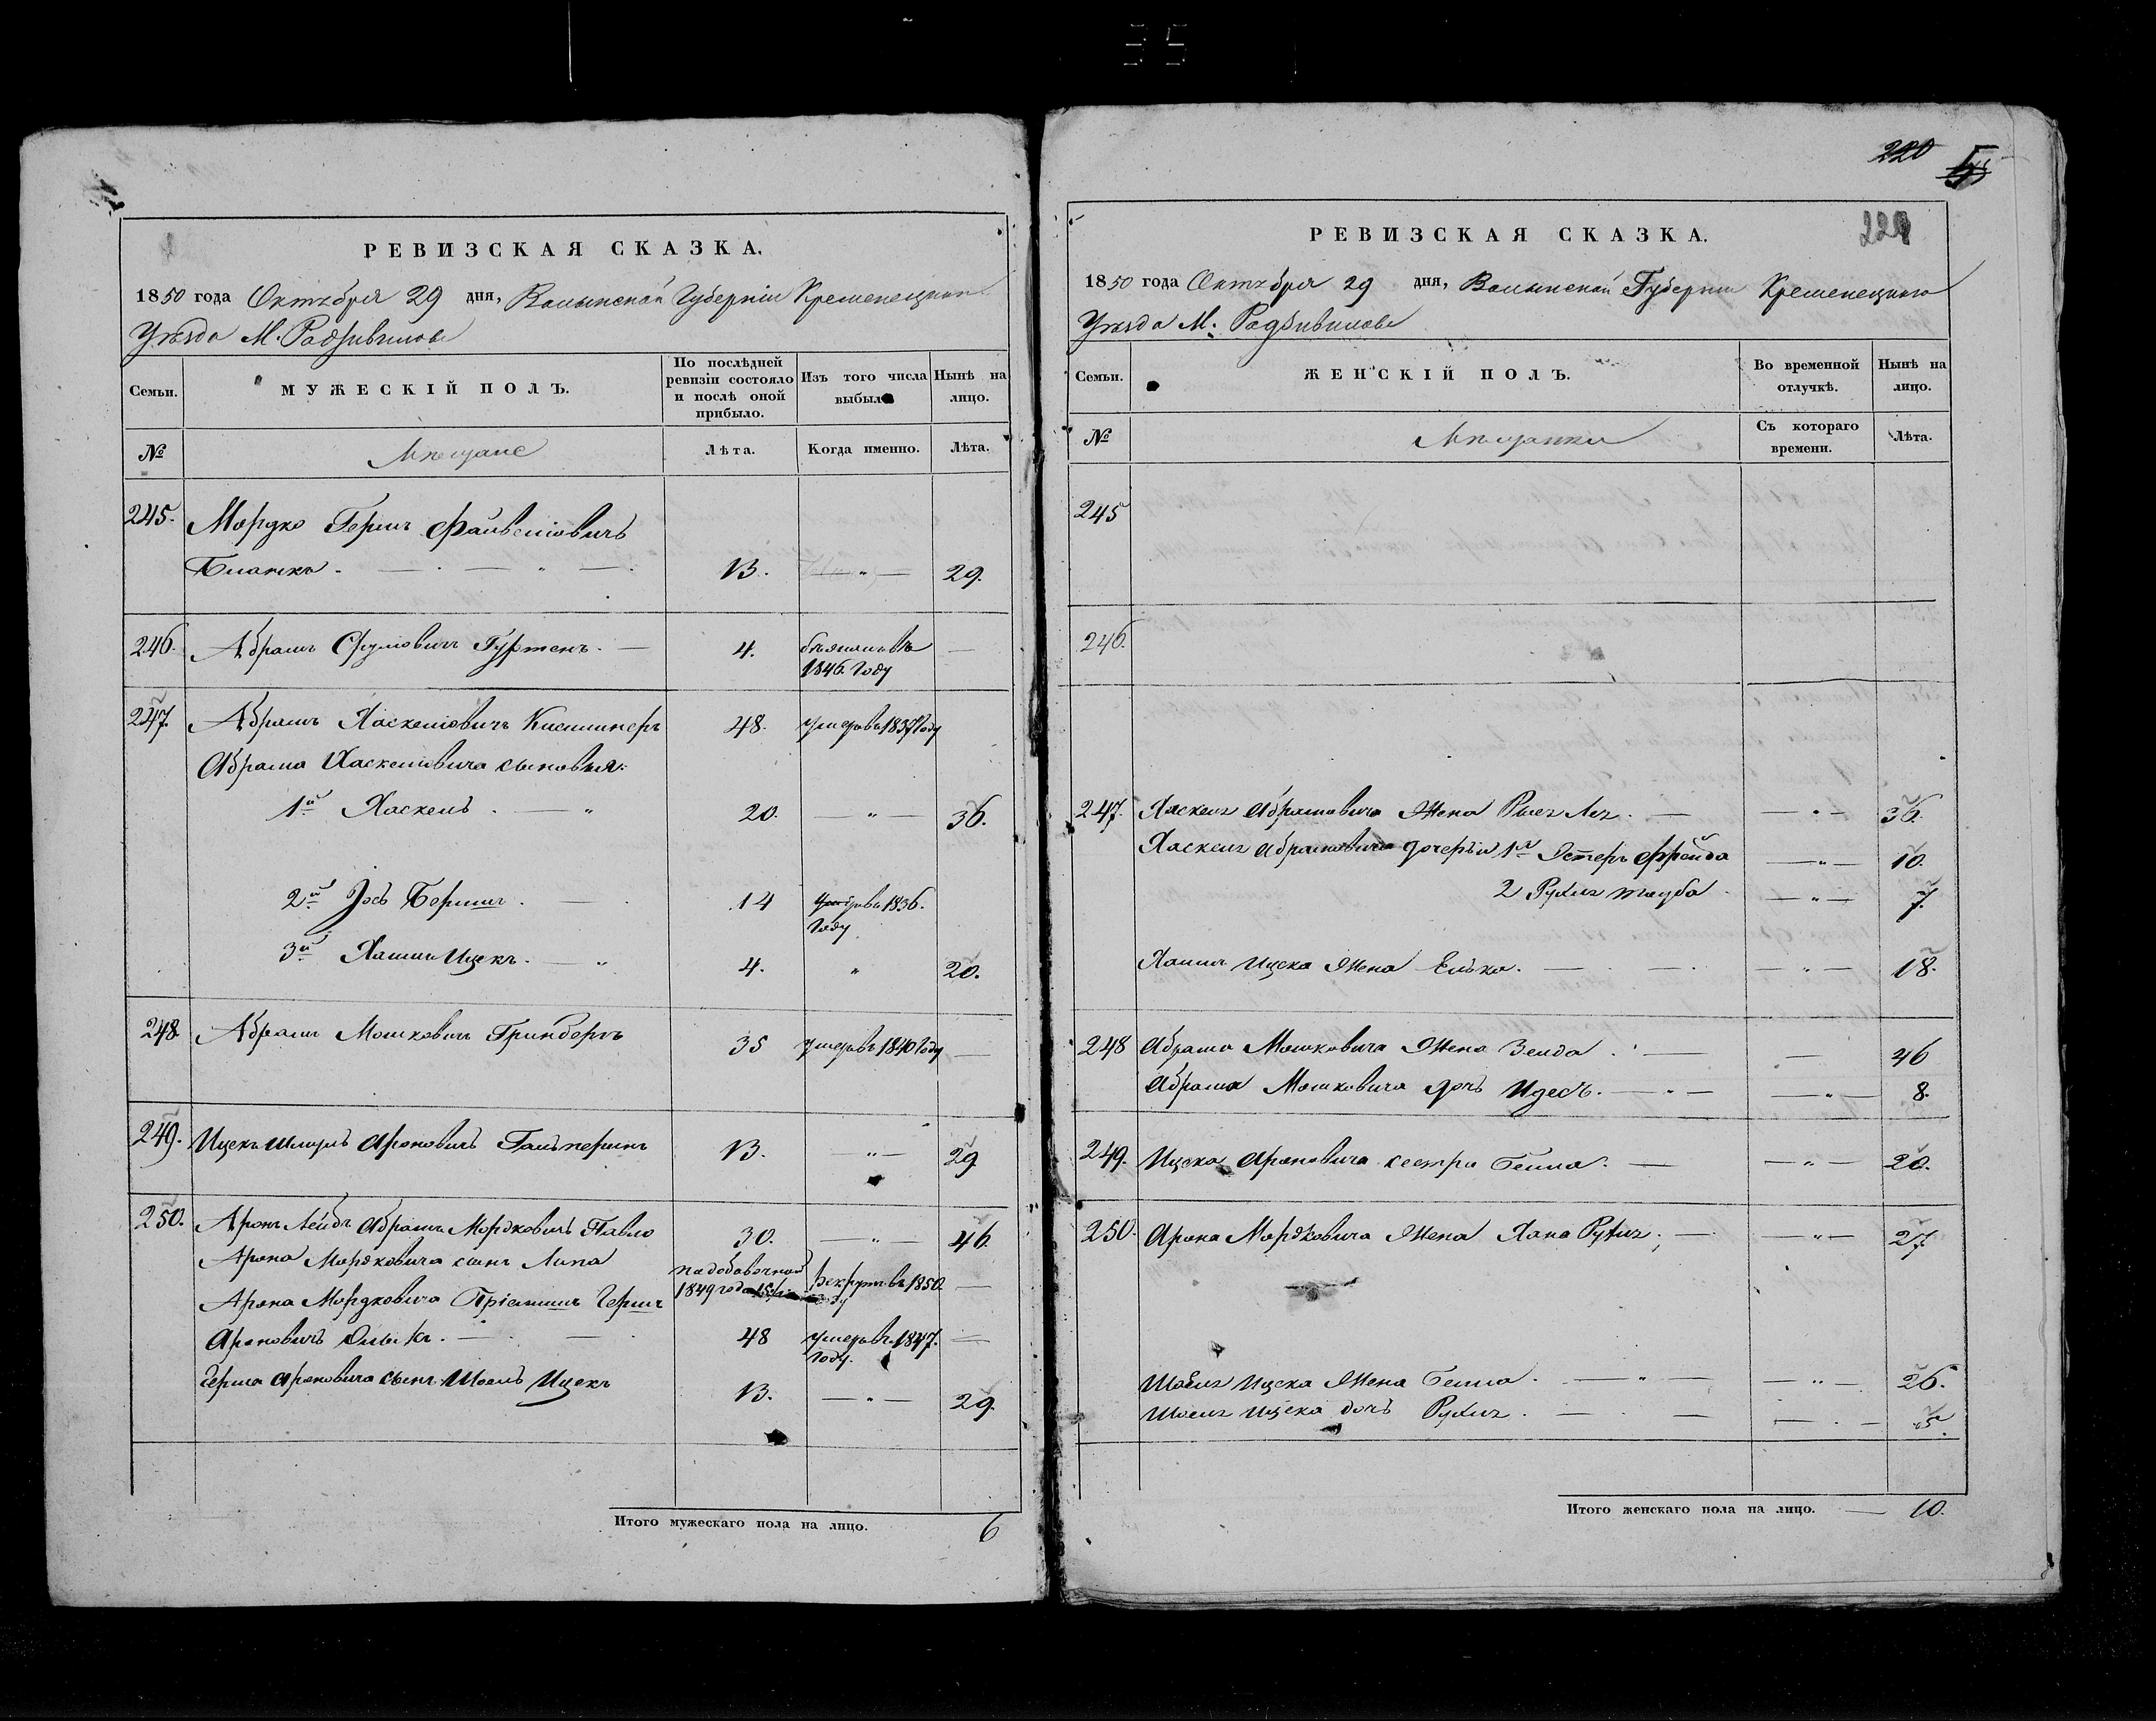 220
РЕВИЗСКАЯ СКАЗКА.
1850 года Октября 29 дня, Волынской Губерніи Кременецкаго
Уѣзда М. Радзивилова
Семьи.
МУЖЕСКІЙ ПОЛЪ.
По послѣдней ревизіи состояло и послѣ оной прибыло.
Изъ того числа выбыло
Нынѣ на лицо.
№
Мѣщане
Лѣта.
Когда именно.
Лѣта.
245. Мордко Гершъ Файвелювичъ
Бланкъ. 13. 29.
246. Абрамъ Сруловичъ Гуртенъ. 4. бѣжалъ въ
1846. Году
247. Абрамъ Хаскелювичъ 48. умеръ въ 1837 Году
Абрама Хаскелювича сыновья:
1й Хаскель. 20. 36.
2й Іосъ Бершъ. 14 умеръ въ 1836.
Году
3й Хаимъ Ицекъ. 4. 20.
248 Абрамъ Мошковичъ Гринбергъ 35 умеръ въ 1840 Году
249. Ицекъ Шмуль Ароновичъ Гальперинъ 13. 29
250. Аронъ Лейбъ Абрамъ Мордковичъ 30. 46.
Арона Мордковича сынъ Липа
по добавочной
1849 года
Рекрутъ въ 1850.
году
Арона Мордковича Пріемышъ Гершъ
Ароновичъ 48 умеръ въ 1847.
году.
Герша Ароновича сынъ Шоель Ицекъ 13. 29.
Итого мужескаго пола на лицо. 6
РЕВИЗСКАЯ СКАЗКА.
1850 года Октября 29 дня, Волынской Губерніи Кременецкаго
Уѣзда М. Радзивилова
Семьи.
ЖЕНСКІЙ ПОЛЪ.
Во временной отлучкѣ.
Нынѣ на лицо.
№
Мѣщанки
Съ котораго времени.
Лѣта.
245
246.
247. Хаскеля Абрамовича Жена Рыся Лея. 36.
Хаскеля Абрамовича дочери 1я Эстеръ Фрейда 10.
2 Рухля Тауба 7.
Хаимъ Ицека Жена Елька. 18.
248 Абрама Мошковича Жена Зелда. 46
Абрама Мошковича дочь Идесъ. 8.
249. Ицека Ароновича сестра Бейла. 20.
250. Арона Мордковича Жена Хана Рухля. 27
Шоеля Ицека Жена Бейла. 26.
Шоеля Ицека дочь Рухля. 5.
Итого женскаго пола на лицо. 10.